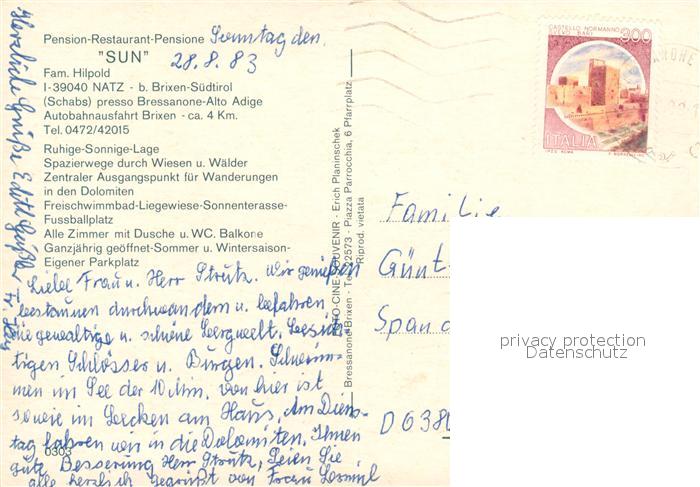 Pension-Restaurant-Pensione
"SUN"
Fam. Hilpold
I-39040 NATZ - b. Brixen-Südtirol
(Schabs) presso Bressanone-Alto Adige
Autobahnausfahrt Brixen - ca. 4 Km.
Tel. 0472/42015
Ruhige-Sonnige-Lage
Spazierwege durch Wiesen u. Wälder
Zentraler Ausgangspunkt für Wanderungen
in den Dolomiten
Freischwimmbad-Liegewiese-Sonnenterasse-
Fussballplatz
Alle Zimmer mit Dusche u. WC. Balkone
Ganzjährig geöffnet-Sommer u. Wintersaison-
Eigener Parkplatz
Sonntag den
28.8.83
Liebe Frau u. Herr Strutz. Wir genießen
bestaunen durchwandern u. befahren
die gewaltige u. schöne Bergwelt, besich-
tigen Schlösser u. Burgen. Schwim-
men im See der 10 Min. von hier ist
sowie im Becken am Haus. Am Diens-
tag fahren wir in die Dolomiten. Ihnen
gute Besserung Herr Strutz, Seien Sie
alle herzlich gegrüßt von Frau
0303
Herzliche Grüße Edith
FOTO-CINE-SOUVENIR - Erich Planinschek
Bressanone-Brixen - Tel. 22573 - Piazza Parrocchia, 6 Pfarrplatz
Riprod. vietata
CASTELLO NORMANNO
SVEVO BARI
300
ITALIA
I.P.Z.S. ROMA
Familie
Günt
Span
D 638
privacy protection
Datenschutz